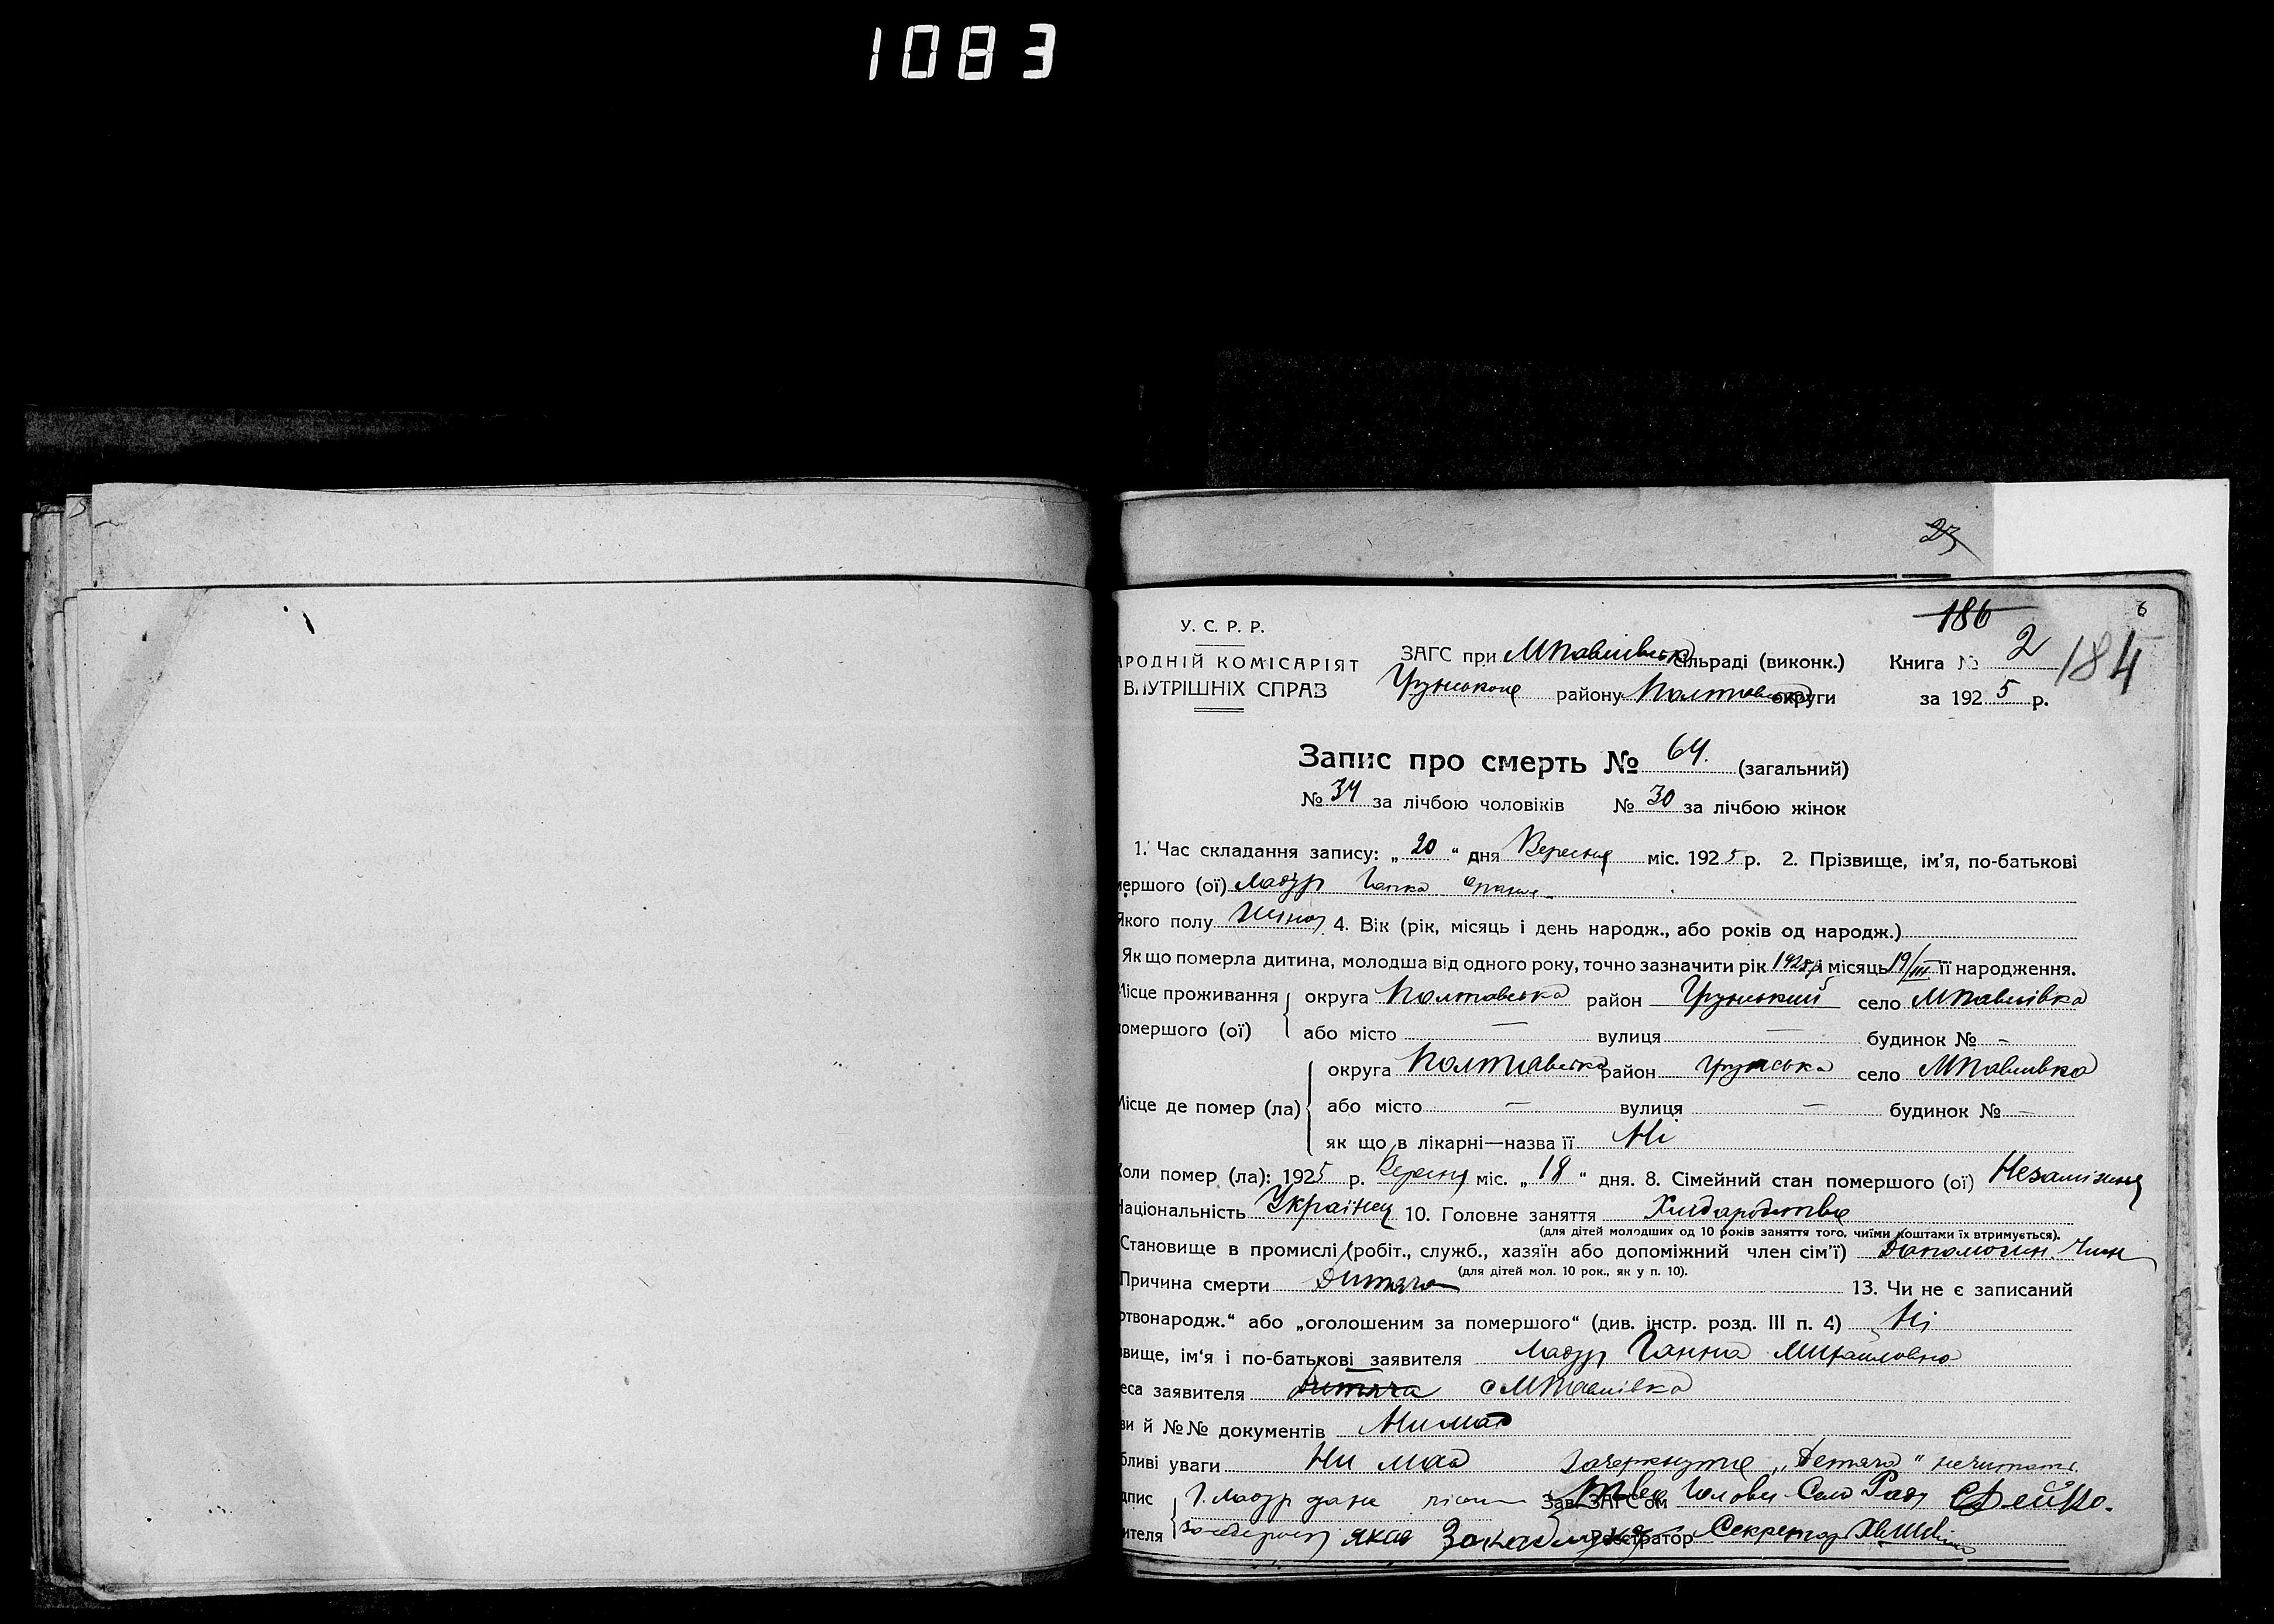 1083
23
186
6
У. С. Р. Р.
АРОДНІЙ КОМІСАРІЯТ
ВНУТРІШНІХ СПРАВ
ЗАГС при МПавлівськ сільраді (виконк.) Книга № 2 184
Грунського району Полтавської округи за 1925 р.
Запис про смерть № 64. (загальний)
№ 34 за лічбою чоловіків № 30 за лічбою жінок
1. Час складання запису: „20“ дня Вересня міс. 1925 р. 2. Прізвище, ім'я, по-батькові
мершого (ої) Мазур Гапка
Якого полу Жіноч 4. Вік (рік, місяць і день народж., або років од народж.)
Як що померла дитина, молодша від одного року, точно зазначити рік 1925 р і місяць 19/III її народження.
Місце проживання округа Полтавська район Грунський село МПавлівка
омершого (ої) або місто — вулиця — будинок № -
округа Полтавська район Грунська село МПавливка
Місце де помер (ла) або місто — вулиця — будинок № —
як що в лікарні—назва її Ні
Коли помер (ла): 1925 р. Вересня міс. „18“ дня. 8. Сімейний стан помершого (ої) Незаміжня
Національність Українец 10. Головне заняття Хлиборобство
(для дітей молодших од 10 років заняття того, чиїми коштами їх втримується).
Становище в промислі (робіт., служб., хазяїн або допоміжний член сім'ї) Допомогин. Член
(для дітей мол. 10 рок., як у п. 10).
Причина смерти Дитяча 13. Чи не є записаний
ртвонародж.“ або „оголошеним за помершого“ (див. інстр. розд. III п. 4) Ні
звище, ім'я і по-батькові заявителя Мазур Ганна Михайловна
еса заявителя дитяча с МПавлівка
ви й №№ документів Нимає
бливі уваги Ни має Зачеркнуте „Детяча“ нечитать
дпис Г. Мазур Зав. ЗАГС'ом Голови Сель Ради
ителя якая Реєстратор Секретар